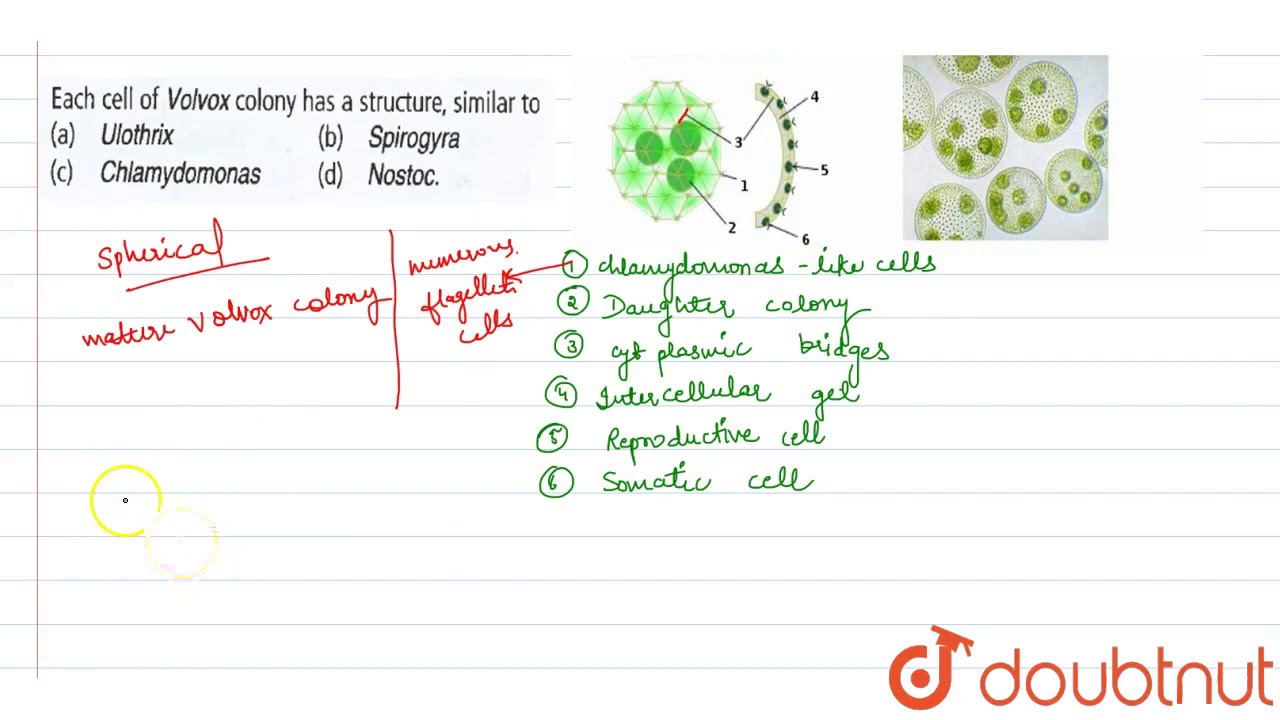 Each cell of Volvox colony has a structure, similar to
(a) Ulothrix (b) Spirogyra
(c) Chlamydomonas (d) Nostoc.
4
3
5
1
2
6
Spherical
mature Volvox colony
numerous.
flagellate
cells
① chlamydomonas - like cells
② Daughter colony
③ cytoplasmic bridges
④ Intercellular gel
⑤ Reproductive cell
⑥ Somatic cell
doubtnut